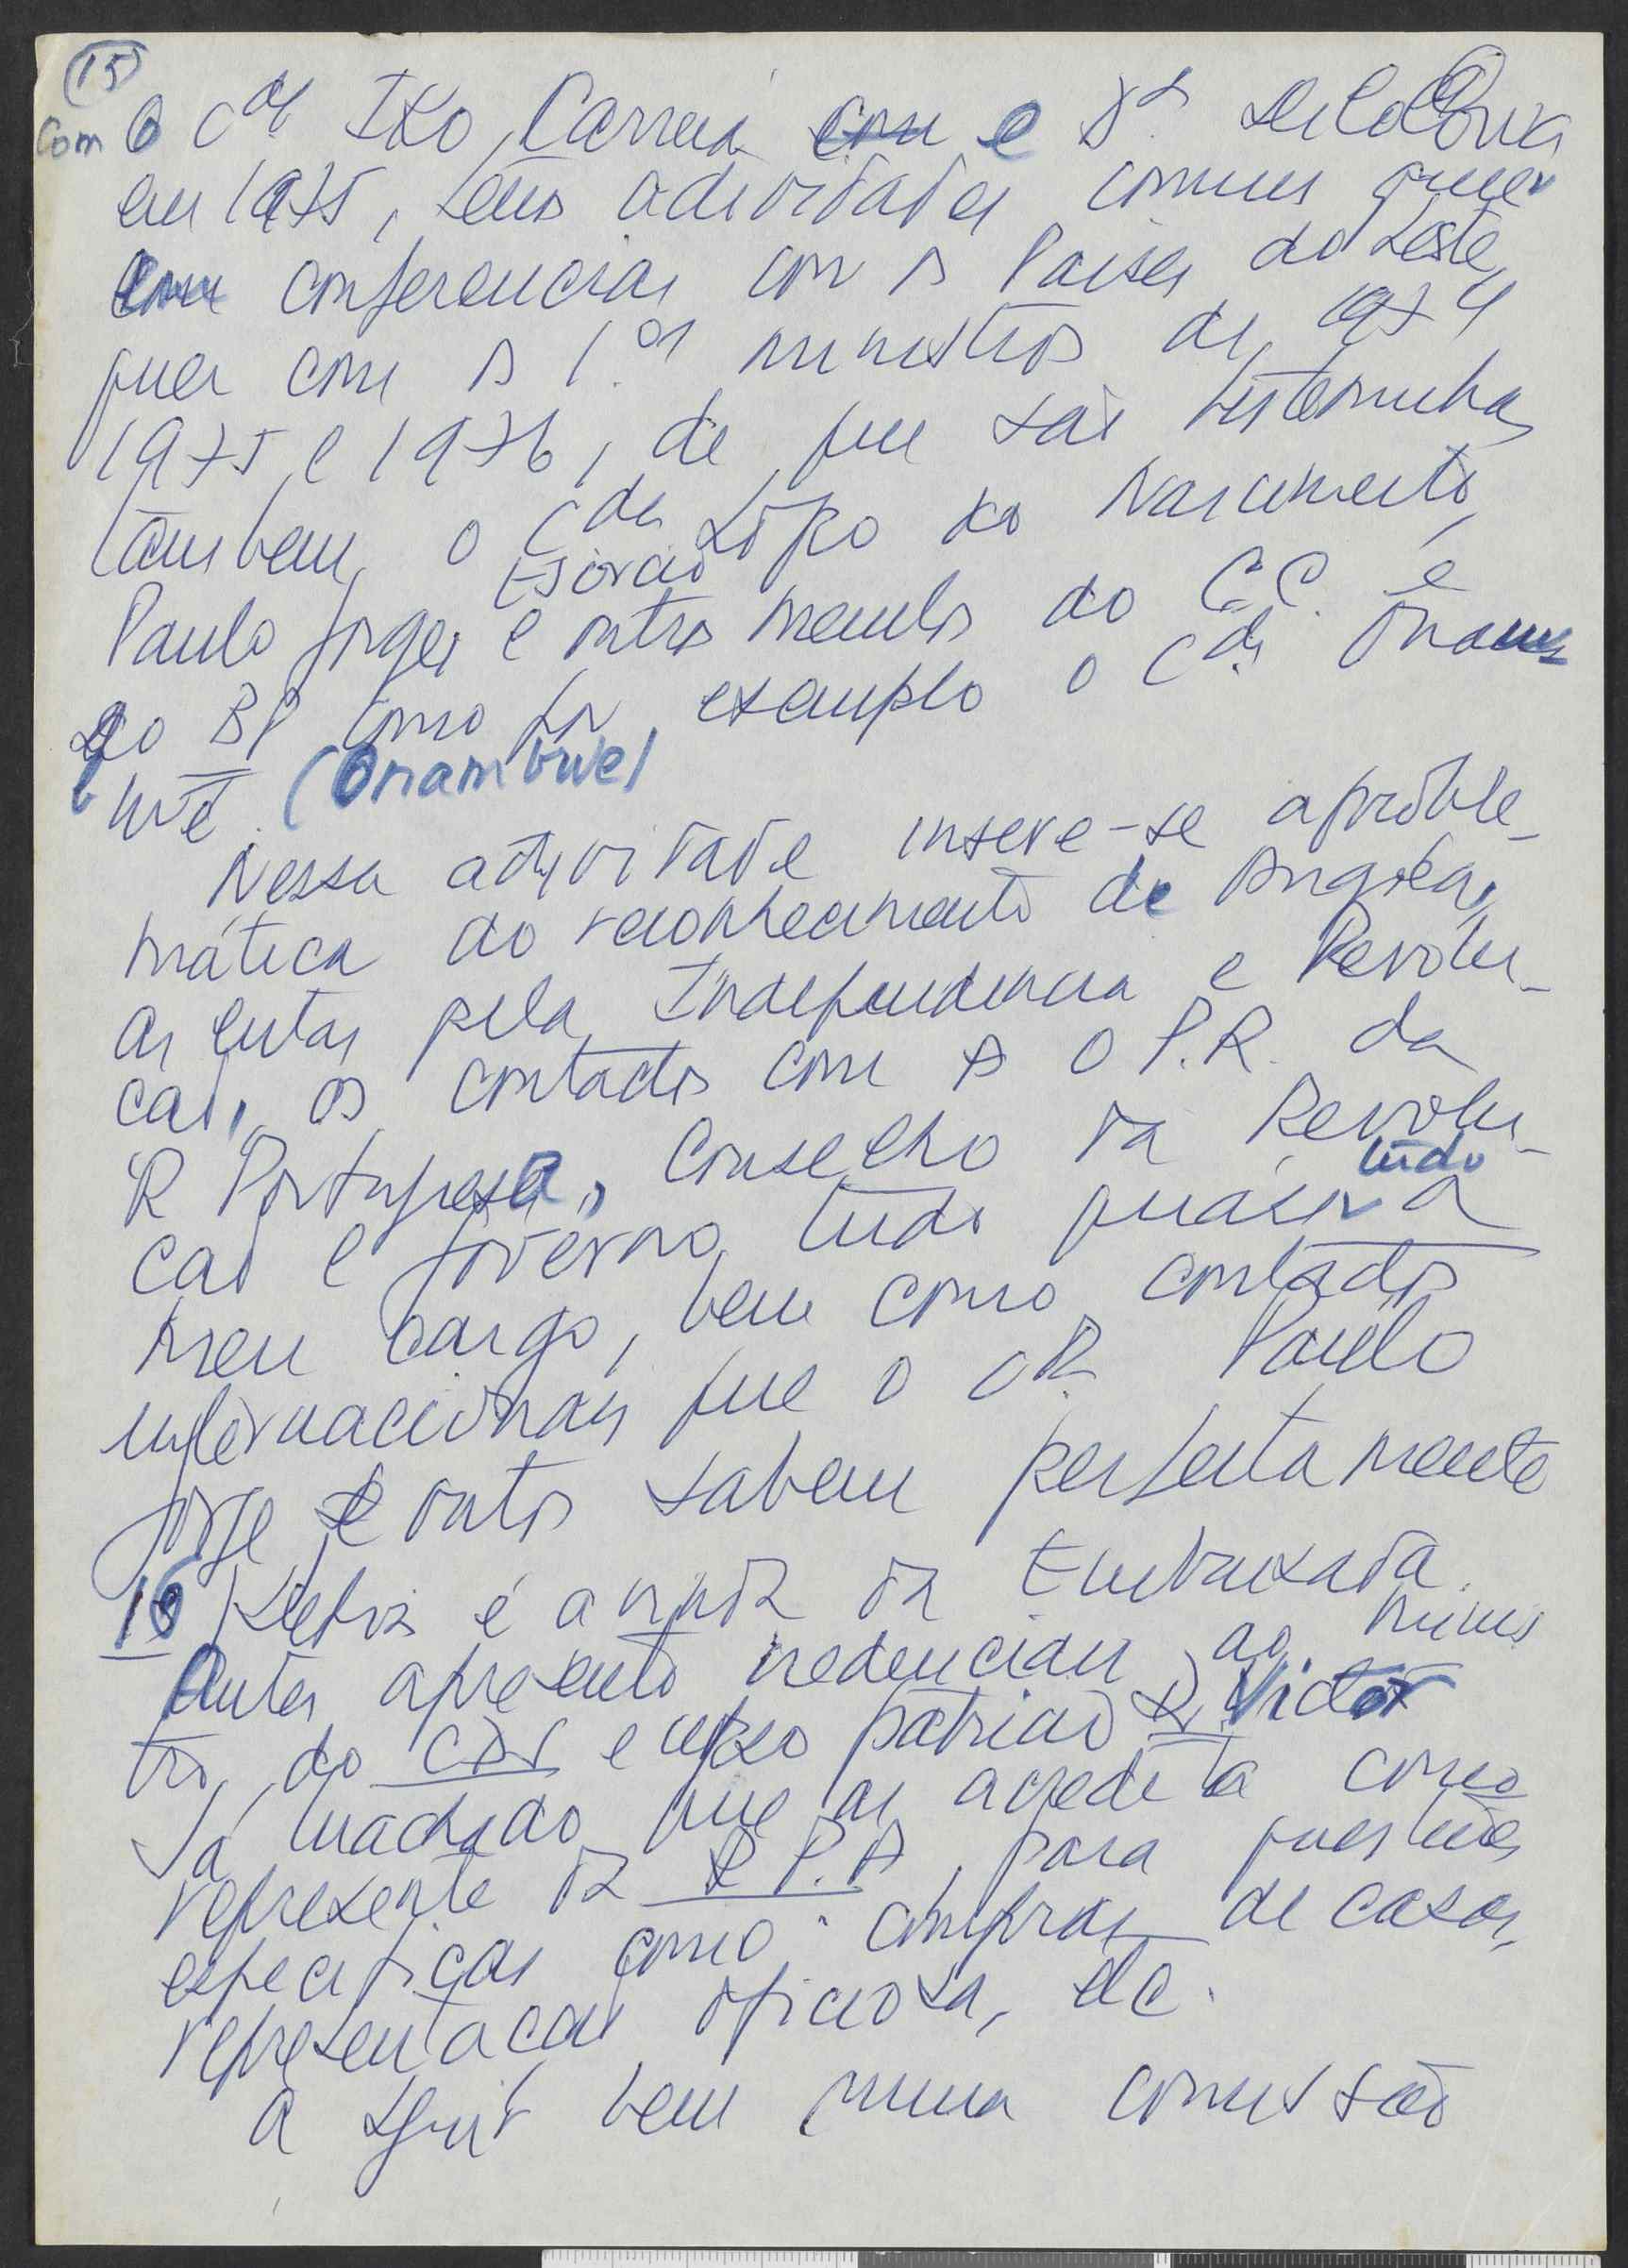 (15)
Com o Cde Iko Carreia com e Dr.
em 1975, temos actividades comuns quer
com conferencias com os Paises do Leste,
quer com os 1.os ministros de 1974
1975 e 1976, de que são testemunhas
tambem, o Cda Lopo do Nascimento,
Paulo Jorge, e outros membros do C.C. e
do BP como por exemplo o Cda. Onam
bwé (Onambwe)
Nessa actividade insere-se a proble-
mática do reconhecimento de Angola,
as lutas pela Independencia e Revolu-
cao, os contactos com o P.R. da
R Portuguesa, Conselho da Revolu-
cao e Governo, tudo quasi tudo a
meu cargo, bem como contactos
internacionais que o Paulo
Jorge e outros sabem perfeitamente
16 é a vinda da Embaixada.
Antes apresento credenciais ao minis
tro do e Victor
Sá Machado que as acredita como
represente da R P.A, para questões
especificas como compras de casas,
representacao oficiosa, etc.
A seguir vem numa comissão